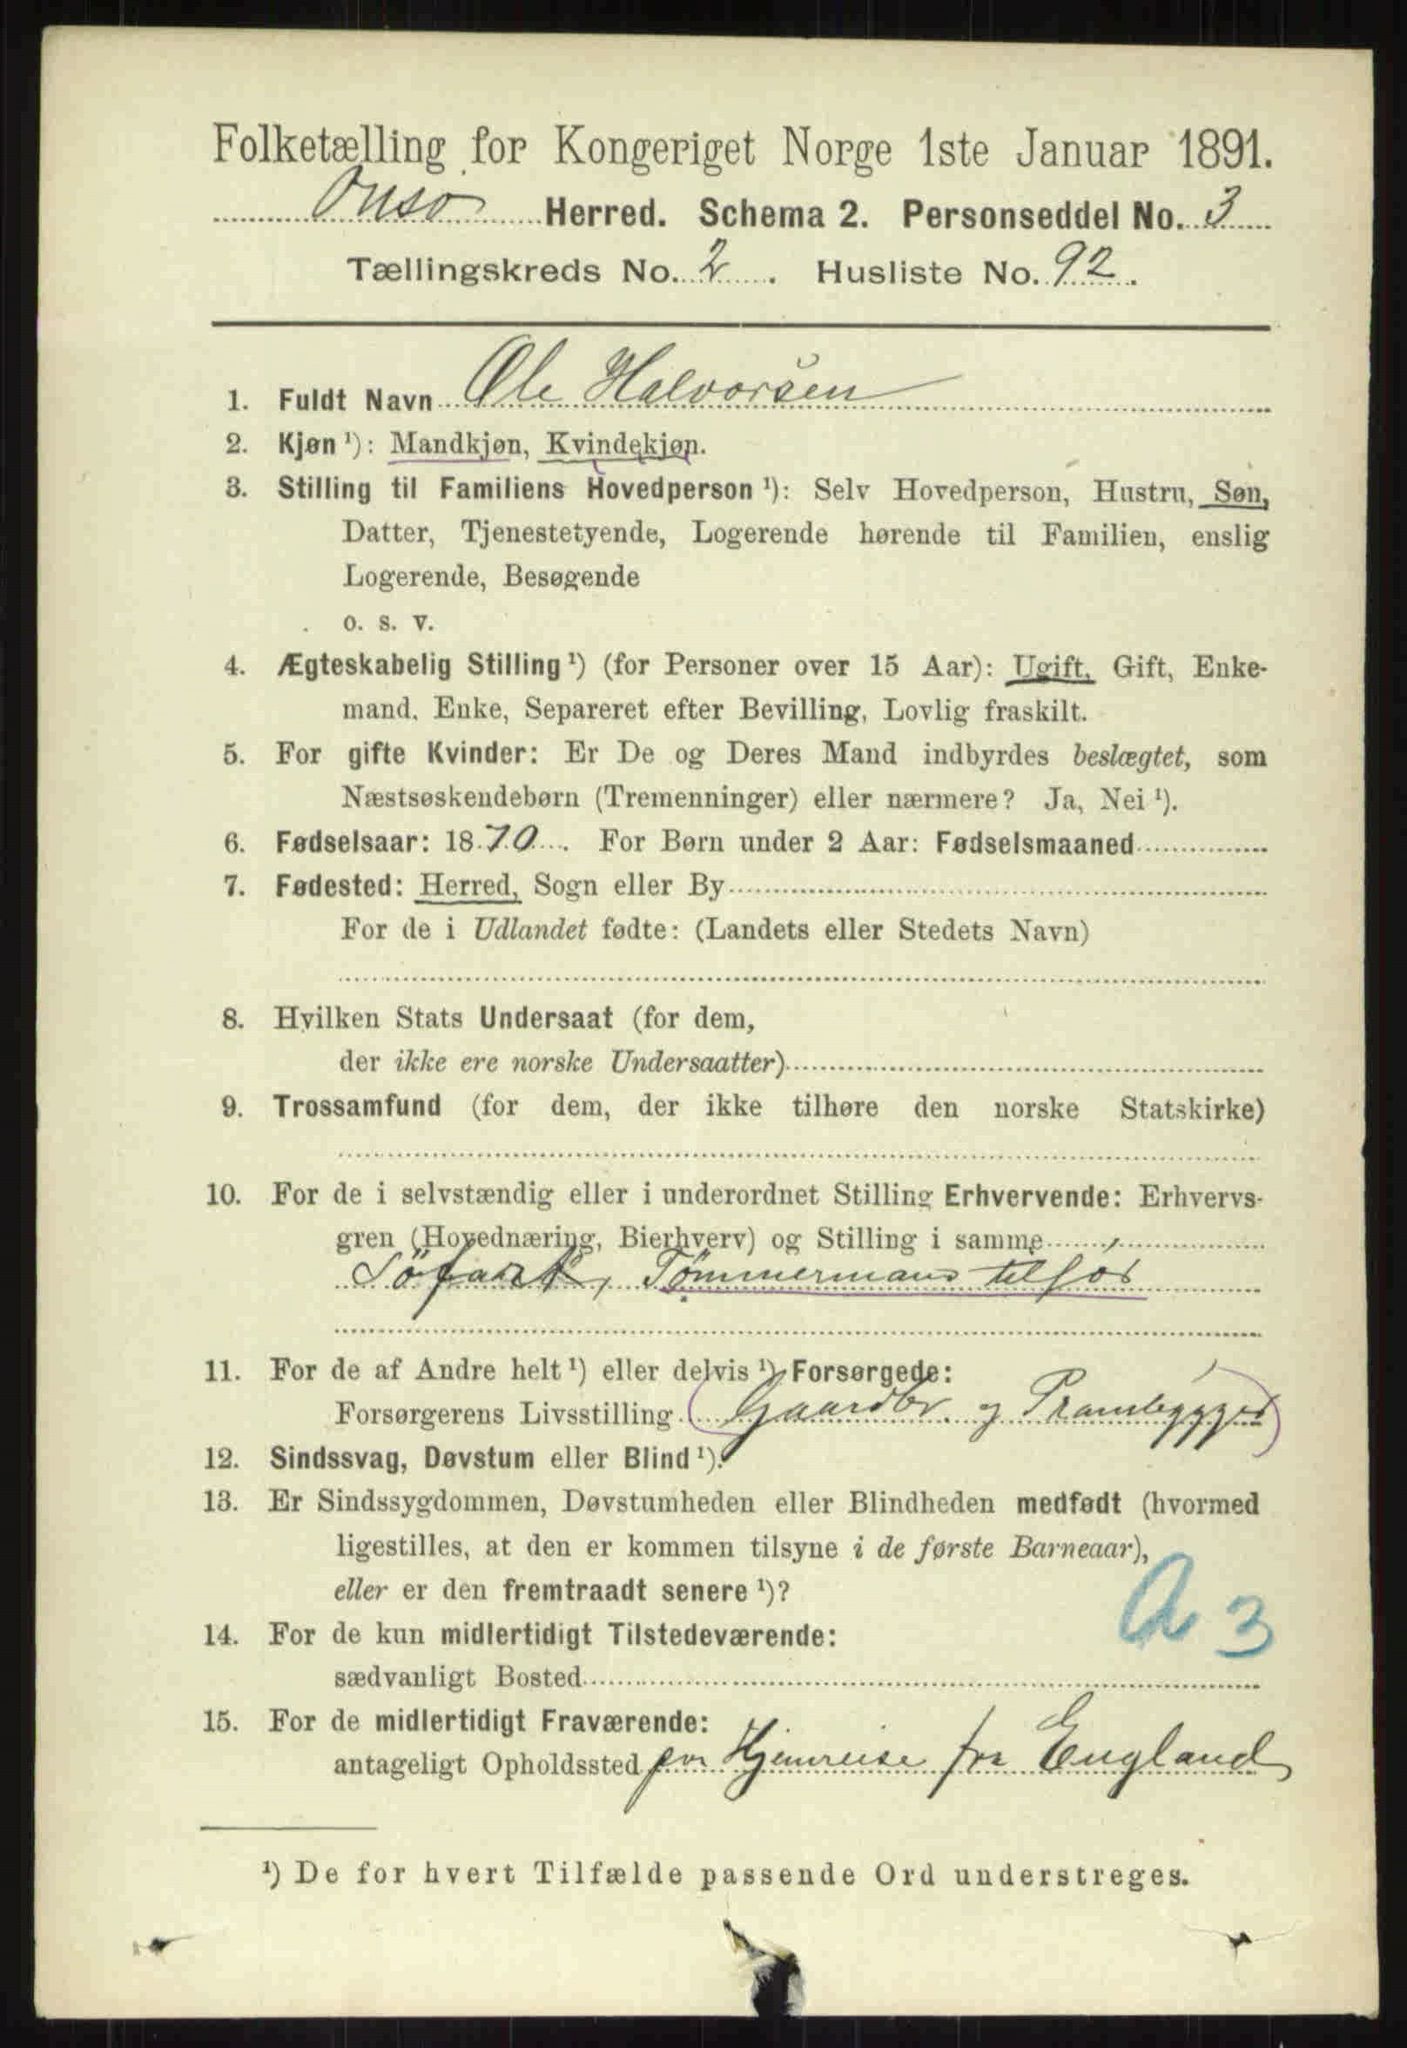 Folketælling for Kongeriget Norge 1ste Januar 1891.
Onsø Herred. Schema 2. Personseddel No. 3
Tællingskreds No. 2. Husliste No. 92.
1. Fuldt Navn Ole Halvorsen
2. Kjøn ¹): Mandkjøn, Kvindekjøn.
3. Stilling til Familiens Hovedperson ¹): Selv Hovedperson, Hustru, Søn,
Datter, Tjenestetyende, Logerende hørende til Familien, enslig
Logerende, Besøgende
o. s. v.
4. Ægteskabelig Stilling ¹) (for Personer over 15 Aar): Ugift, Gift, Enke-
mand, Enke, Separeret efter Bevilling, Lovlig fraskilt.
5. For gifte Kvinder: Er De og Deres Mand indbyrdes beslægtet, som
Næstsøskendebørn (Tremenninger) eller nærmere? Ja, Nei ¹).
6. Fødselsaar: 1870. For Børn under 2 Aar: Fødselsmaaned
7. Fødested: Herred, Sogn eller By
For de i Udlandet fødte: (Landets eller Stedets Navn)
8. Hvilken Stats Undersaat (for dem,
der ikke ere norske Undersaatter)
9. Trossamfund (for dem, der ikke tilhøre den norske Statskirke)
10. For de i selvstændig eller i underordnet Stilling Erhvervende: Erhvervs-
gren (Hovednæring, Bierhverv) og Stilling i samme
Söfart, Tømmermand tilsös
11. For de af Andre helt ¹) eller delvis ¹) Forsørgede:
Forsørgerens Livsstilling (Gaardbr. og Prambygger)
12. Sindssvag, Døvstum eller Blind ¹).
13. Er Sindssygdommen, Døvstumheden eller Blindheden medfødt (hvormed
ligestilles, at den er kommen tilsyne i de første Barneaar),
eller er den fremtraadt senere ¹)?
a 3
14. For de kun midlertidigt Tilstedeværende:
sædvanligt Bosted
15. For de midlertidigt Fraværende:
antageligt Opholdssted paa Hjemreise fra England
¹) De for hvert Tilfælde passende Ord understreges.